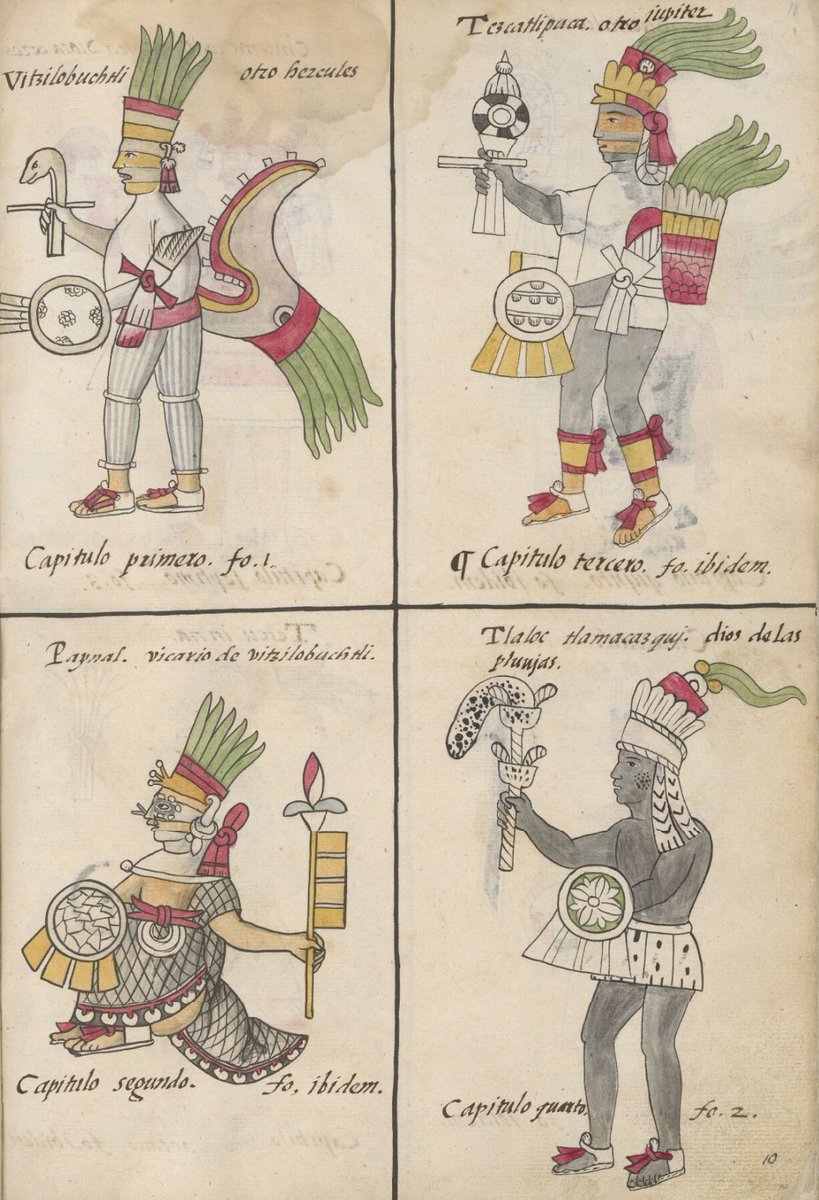 Vitzilobuchtli otro hercules
Capitulo primero. fo. 1.
Tezcatlipuca. otro jupiter
¶ Capitulo tercero. fo. ibidem.
Paynal. vicario de vitzilobuchtli.
Capitulo segundo. fo. ibidem.
Tlaloc tlamacazquj. dios de las
pluujas.
Capitulo quarto. fo. 2.
10